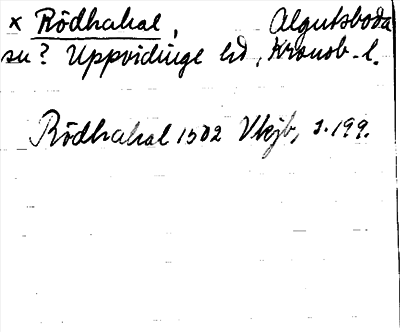 × Rödhakal, Algutsboda
sn? Uppvidinge hd, Kronob. l.
Rödhakal 1502 Vkjb, s. 199.